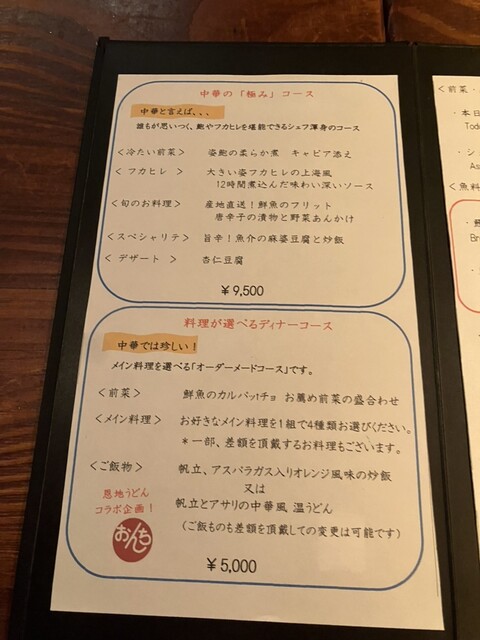 中華の「極み」コース
中華と言えば、、、
誰もが思いつく、鮑やフカヒレを堪能できるシェフ渾身のコース
<冷たい前菜> 姿鮑の柔らか煮 キャビア添え
<フカヒレ> 大きい姿フカヒレの上海風
12時間煮込んだ味わい深いソース
<旬のお料理> 産地直送！鮮魚のフリット
唐辛子の漬物と野菜あんかけ
<スペシャリテ> 旨辛！魚介の麻婆豆腐と炒飯
<デザート> 杏仁豆腐
￥9,500
料理が選べるディナーコース
中華では珍しい！
メイン料理を選べる「オーダーメードコース」です。
<前菜> 鮮魚のカルパッチョ お薦め前菜の盛合わせ
<メイン料理> お好きなメイン料理を1組で4種類お選びください。
＊一部、差額を頂戴するお料理もございます。
<ご飯物> 帆立、アスパラガス入りオレンジ風味の炒飯
又は
帆立とアサリの中華風 温うどん
（ご飯ものも差額を頂戴しての変更は可能です）
恩地うどん
コラボ企画！
おんち
￥5,000
<前菜・
・本日
Toda
・シ
As
<魚料
Br